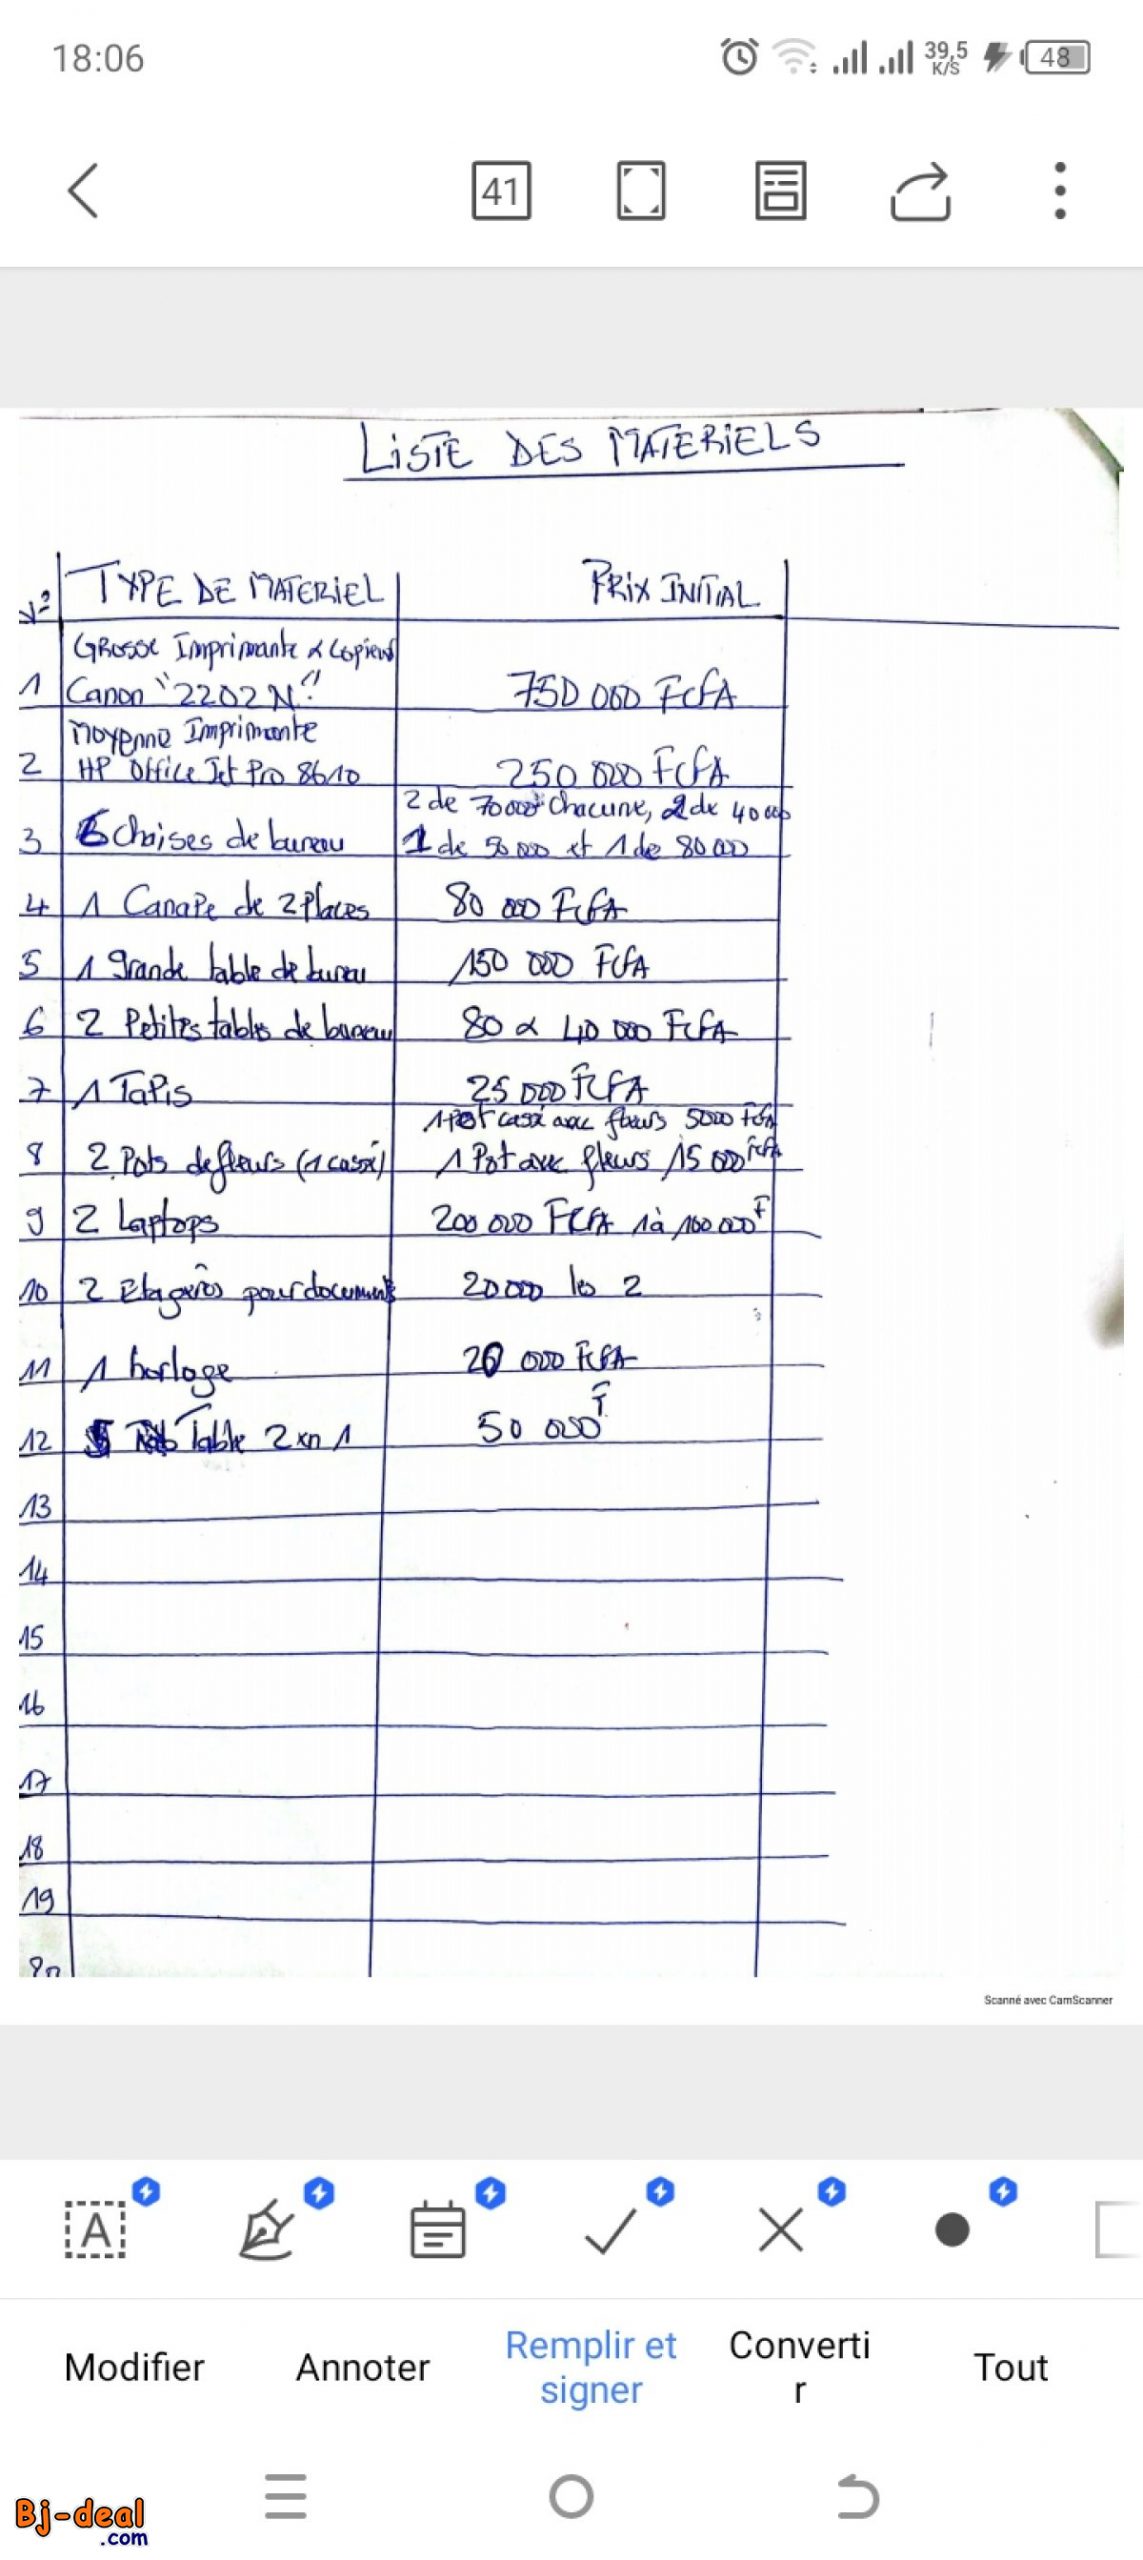 18:06
39,5
K/S
48
41
LISTE DES MATERIELS
N° TYPE DE MATERIEL PRIX INITIAL
Grosse Imprimante & Copieur
1 Canon "2202N" 750 000 FCFA
Moyenne Imprimante
2 HP Office Jet Pro 8610 250 000 FCFA
2 de 70000F Chacune, 2 de 40000
3 6 Chaises de bureau 1 de 50000 et 1 de 80000
4 1 Canape de 2 Places 80 000 FCFA
5 1 grande table de bureau 150 000 FCFA
6 2 Petites tables de bureau 80 & 40 000 FCFA
7 1 TaPis 25 000 FCFA
1 Pot cassé avec fleurs 5000 FCFA
8 2 Pots de fleurs (1 cassé) 1 Pot avec fleurs 15 000 FCFA
9 2 Laptops 200 000 FCFA 1 à 100 000 F
10 2 Etagères pour documents 20000 les 2
11 1 horloge 20 000 FCFA
12 Table 2 en 1 50 000 F
13
14
15
16
17
18
19
Scanné avec CamScanner
A
Modifier
Annoter
Remplir et
signer
Converti
r
Tout
Bj-deal
.com